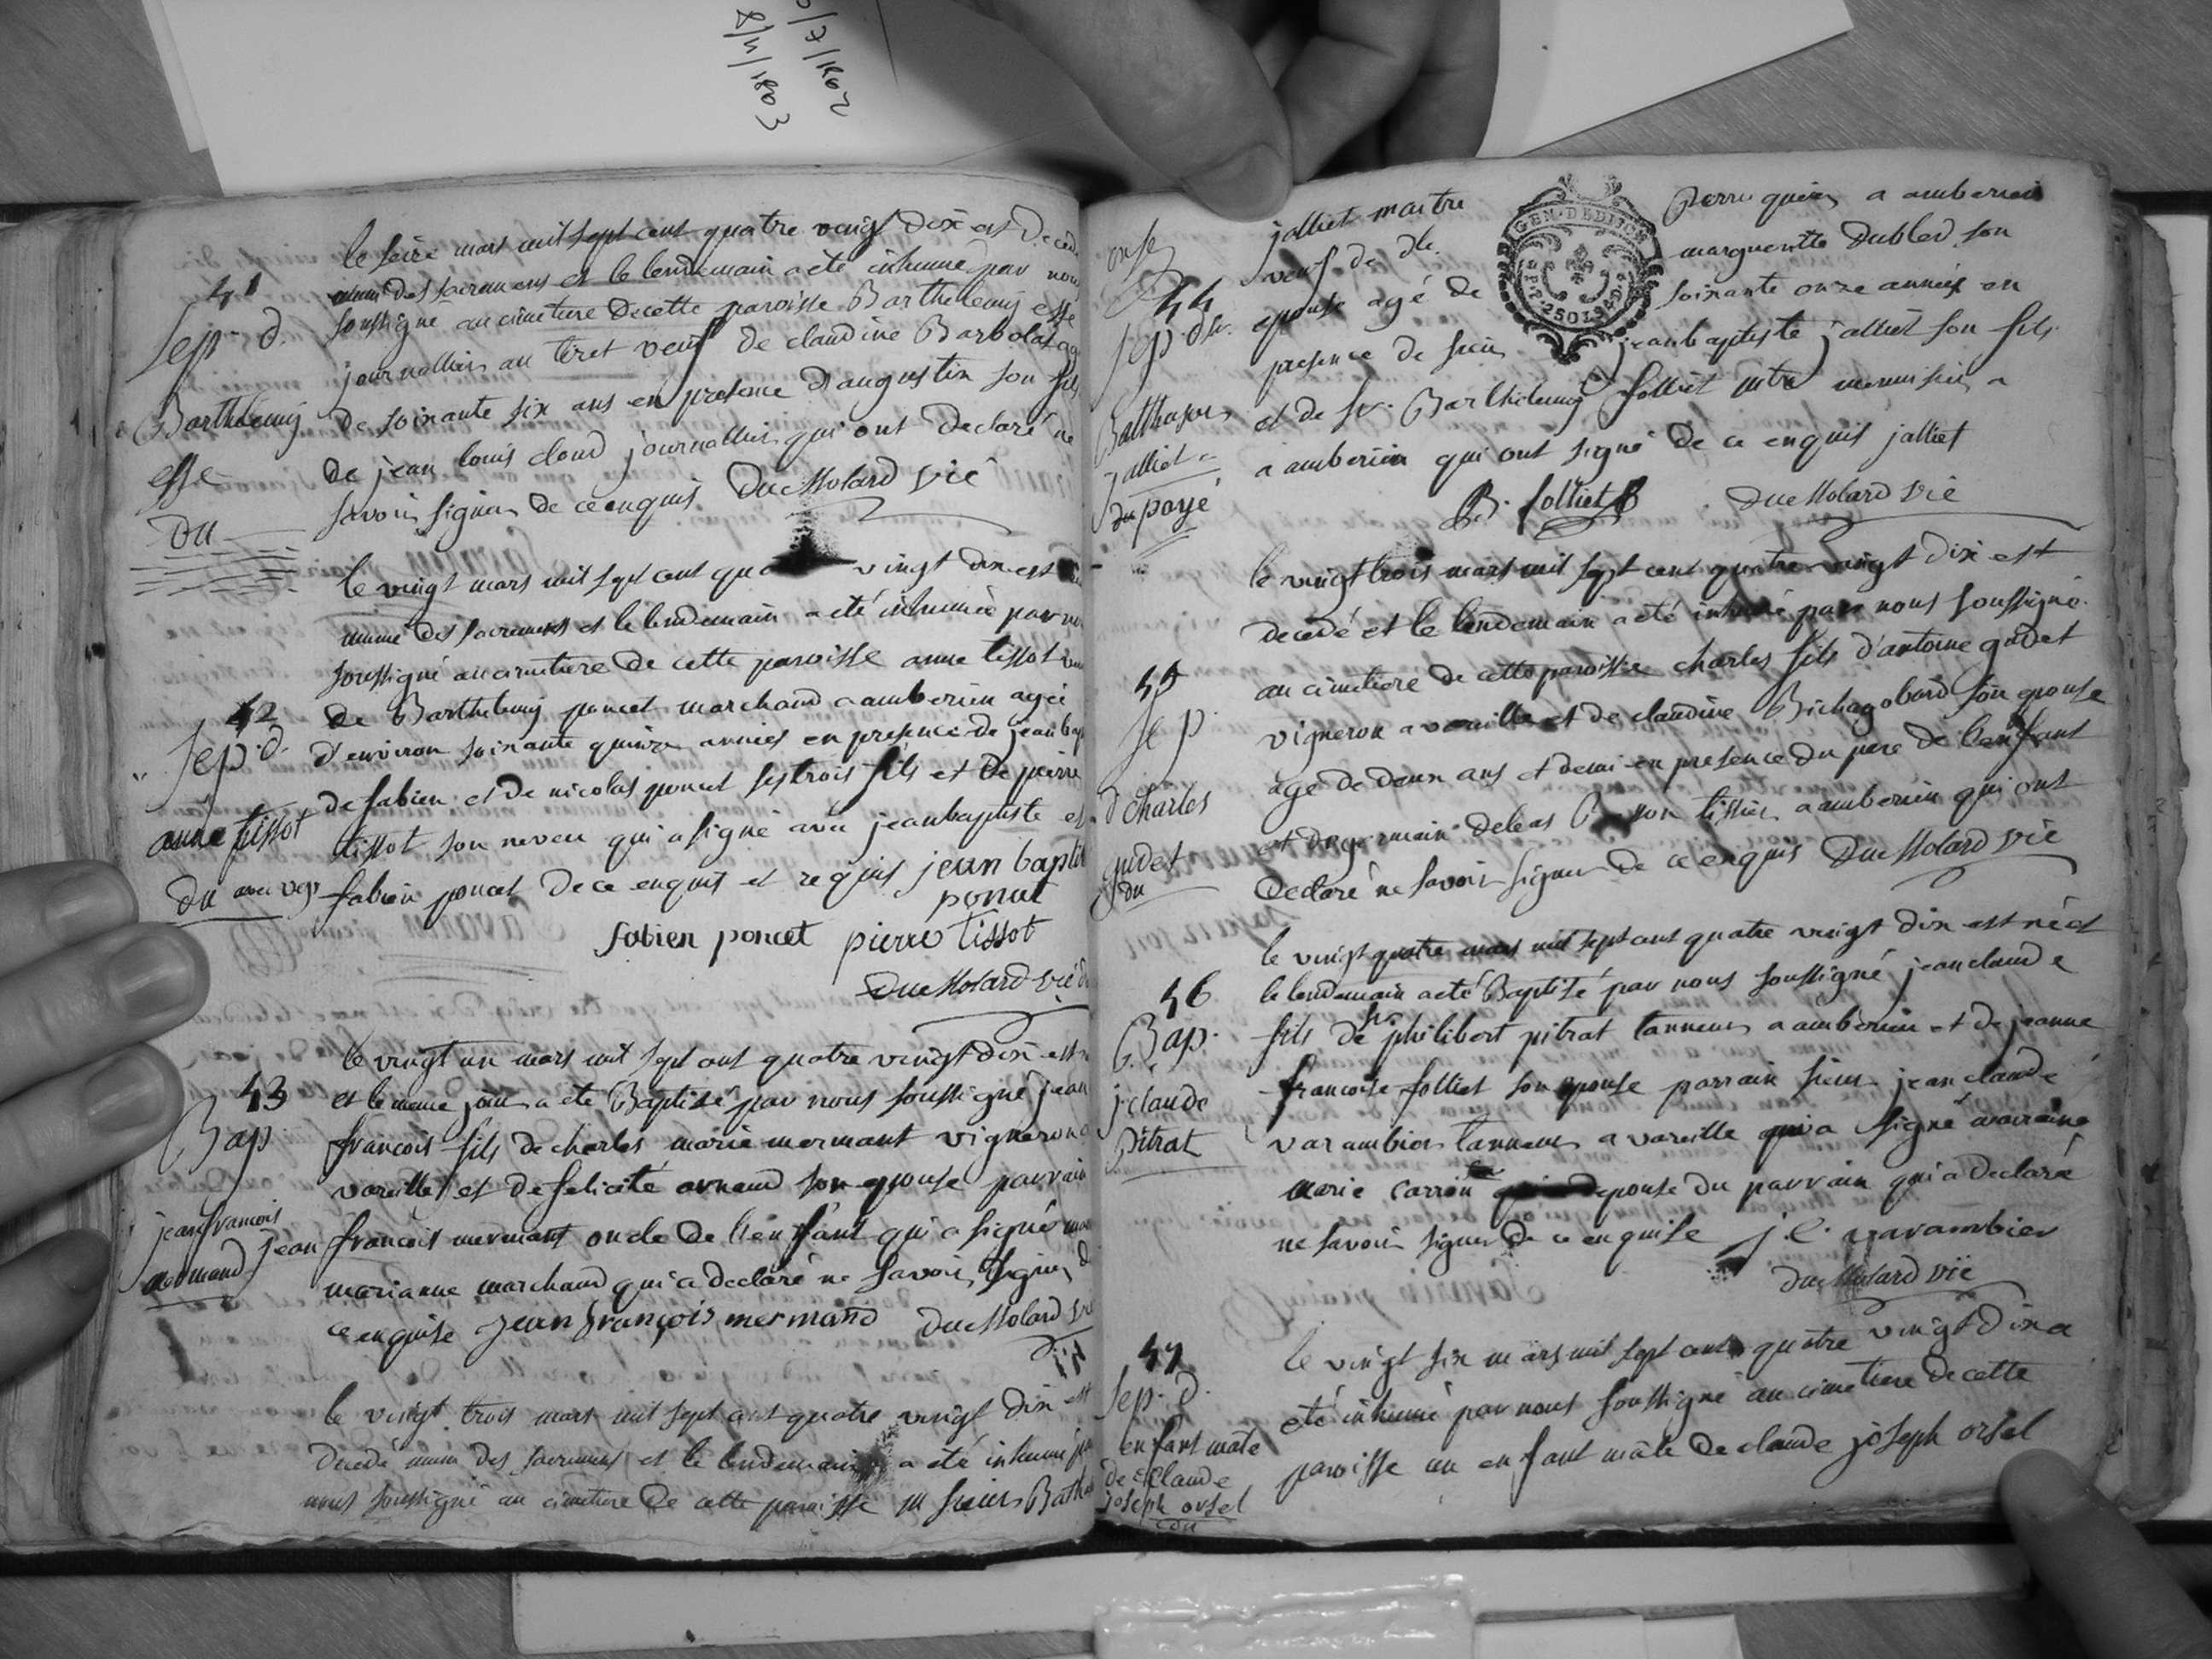 8/11/1803
/7/1802
le seize mars mil sept cent quatre vingt dix est decedé
muni des sacremens et le lendemain a eté inhumé par nous
soussigné au cimetiere de cette paroisse Barthelemy esse
journallier au tiret veuf de claudine Barbolat agé
de soixante six ans en presence d'augustin son fils
de jean louis cloud journallier qui ont declaré ne
savoir signer de ce enquis Dumolard vic
41
sep. d.
Barthelemy
esse
du
le vingt mars mil sept cent vingt dix est
munie des sacremens et le lendemain a eté inhumée par
soussigné au cimetiere de cette paroisse anne tissot
de Barthelemy poncet marchand a amberieu agée
d'environ soixante quinze années en presence de jean bap
de fabien et de nicolas poncet ses trois fils et de pierre
tissot son neveu qui a signé avec jean baptiste et
fabien poncet de ce enquis et requis jean baptis
poncet
fabien poncet pierre tissot
Dumolard vic
42
sep. d.
anne tissot
du
le vingt un mars mil sept cent quatre vingt dix est
et le meme jour a eté Baptisé par nous soussigné jean
françois fils de charles marie mermant vigneron a
vareille et de felicité arnaud son epouse parrain
jean françois mermant oncle de l'enfant qui a signé
marianne marchand qui a declaré ne savoir signer de
ce enquise jean françois mermand Dumolard vic
43
Bap
jean francois
mermand
le vingt trois mars mil sept cent quatre vingt dix est
decedé muni des sacremens et le lendemain a eté inhumé
nous soussigné au cimetiere de cette paroisse sieur Balthas
jalliet maitre perruquier a amberieu
veuf de dle. marguerite Dubled son
epouse agé de soixante onze années en
presence de sieur jean baptiste jalliet son fils
et de sr. Barthelemy folliet mtre menuisier a
a amberieu qui ont signé de ce enquis jalliet
B. folliet Dumolard vic
GEN. DE DIJON
44
sep. d sr.
Balthasar
jalliet
du payé
le vingt trois mars mil sept cent quatre vingt dix est
decedé et le lendemain a eté inhumé par nous soussigné
au cimetiere de cette paroisse charles fils d'antoine gudet
vigneron a vareille et de claudine Bichagobard son epouse
agé de deux ans et demi en presence du pere de l'enfant
et de germain deleas tissier a amberieu qui ont
declaré ne savoir signer de ce enquis Dumolard vic
45
sep
d charles
gudet
du
le vingt quatre mars mil sept cent quatre vingt dix est né et
le lendemain a eté Baptisé par nous soussigné jean claude
fils de sr philibert pitrat tanneur a amberieu et de jeanne
francoise folliet son epouse parrain sieur jean claude
varambier tanneur a vareille qui a signé marraine
marie carron epouse du parrain qui a declaré
ne savoir signer de ce enquise j. c. varambier
Dumolard vic
46
Bap.
j. claude
pitrat
le vingt six mars mil sept cent quatre vingt dix a
eté inhumé par nous soussigné au cimetiere de cette
paroisse un enfant mâle de claude joseph orsel
47
sep. d.
enfant mâle
de claude
joseph orsel
du